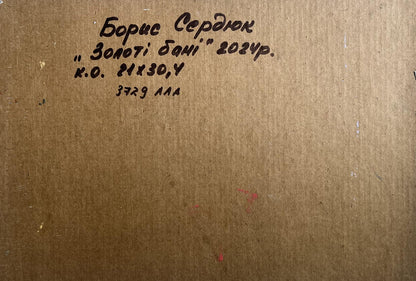 Борис Сердюк
„Золоті бані" 2024р.
к.о. 21х30,4
3729 ААА